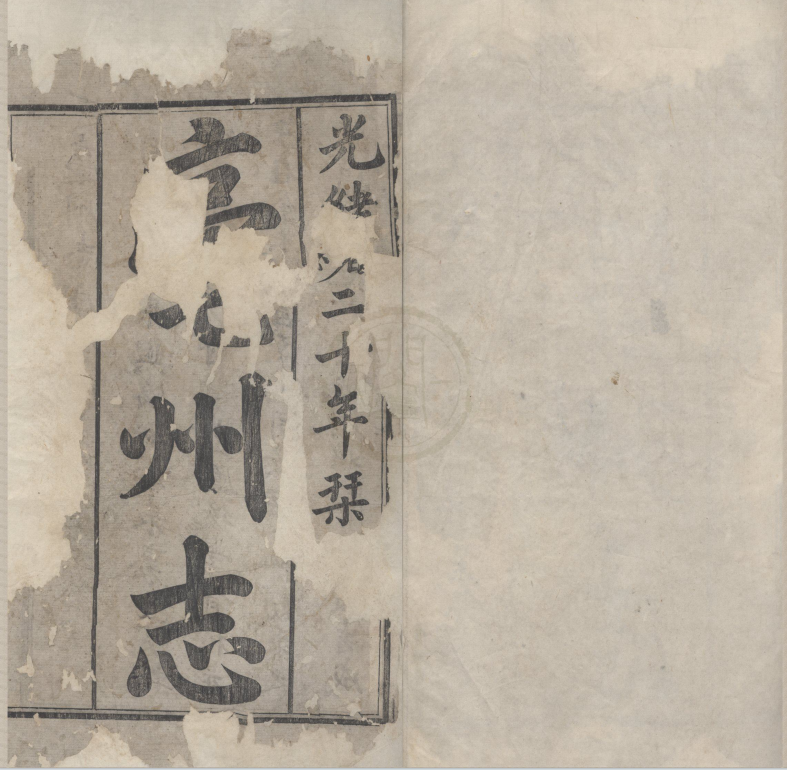 光緒二十年栞
州志